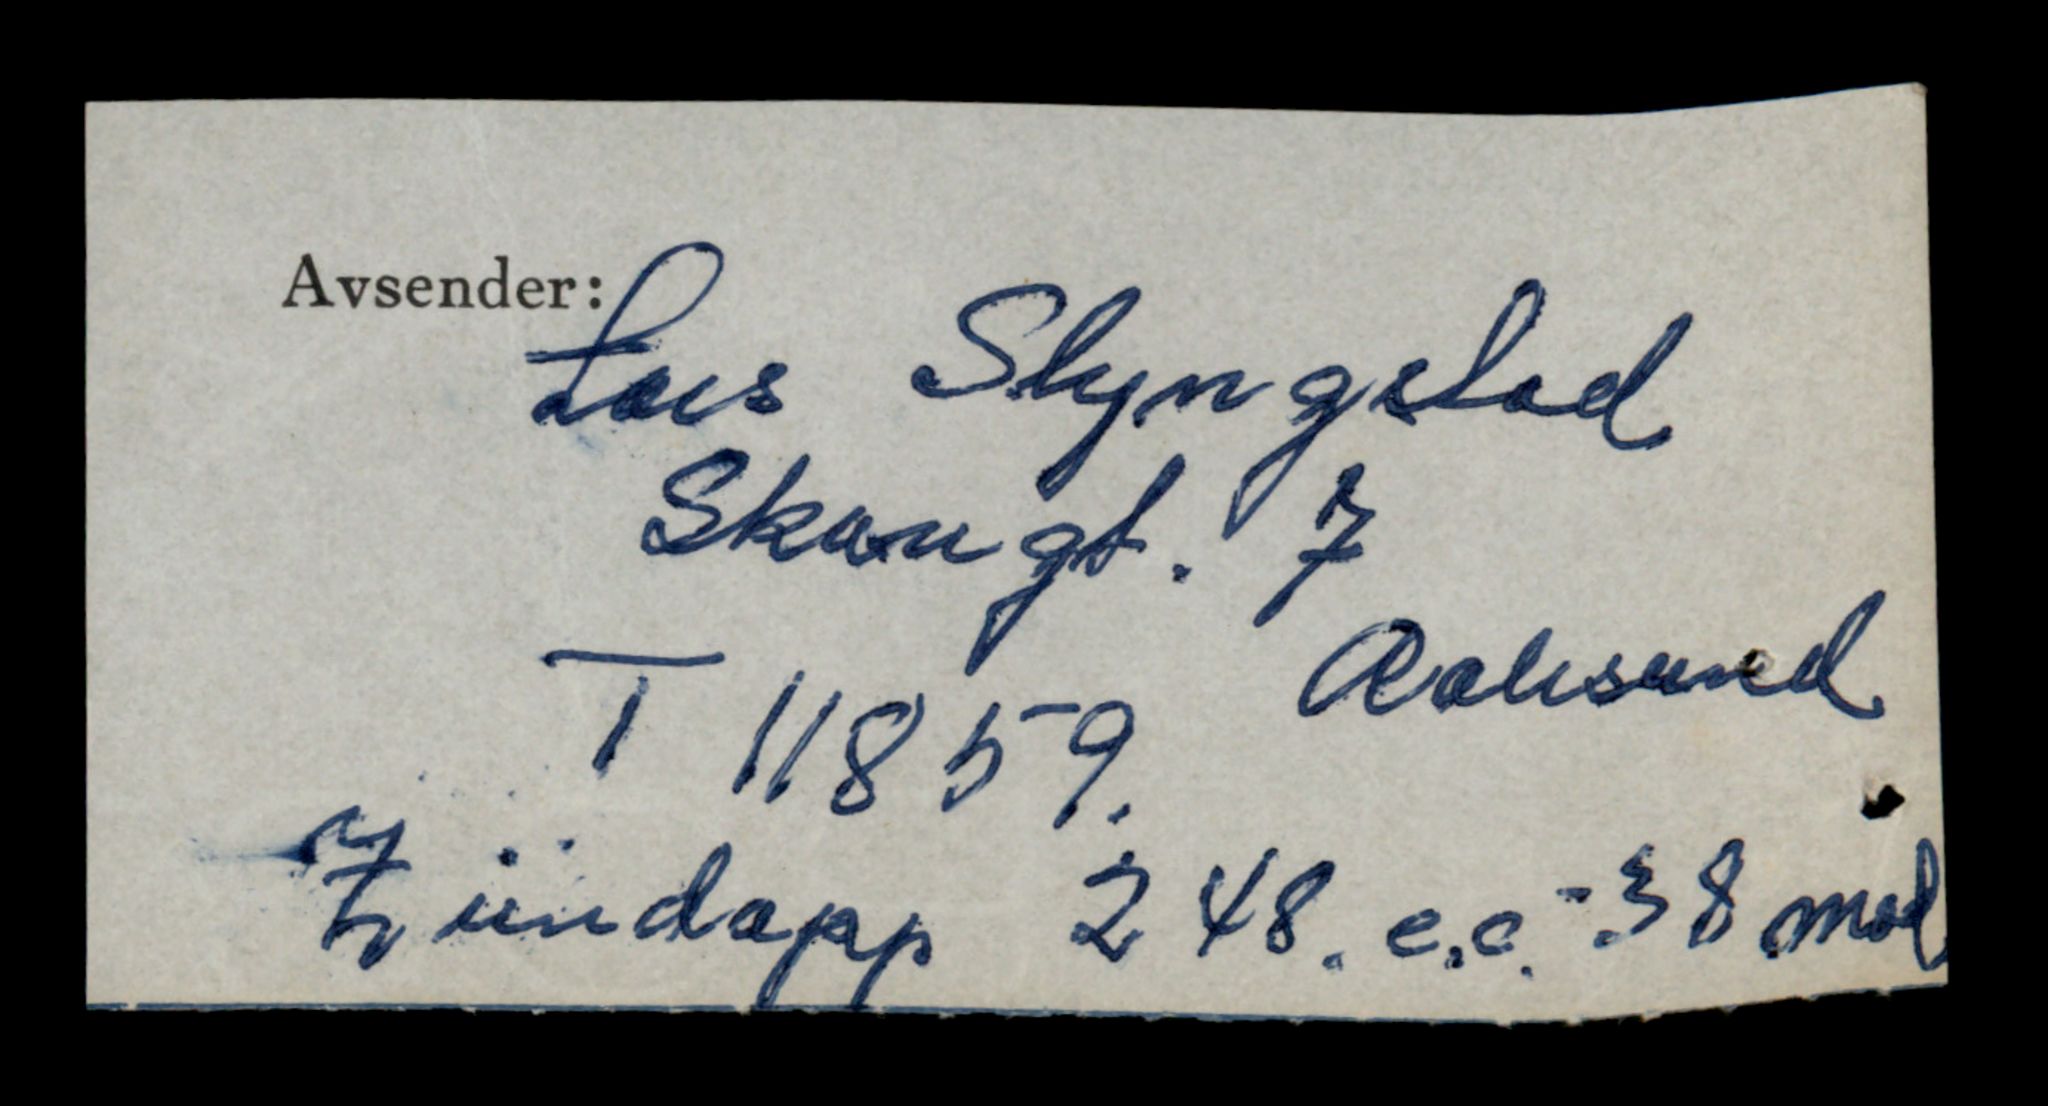 Avsender: Lars Slyngstad
Skarugt. 7
Aalesund
T 11859.
Zündapp 248. c.c. - 38 mod